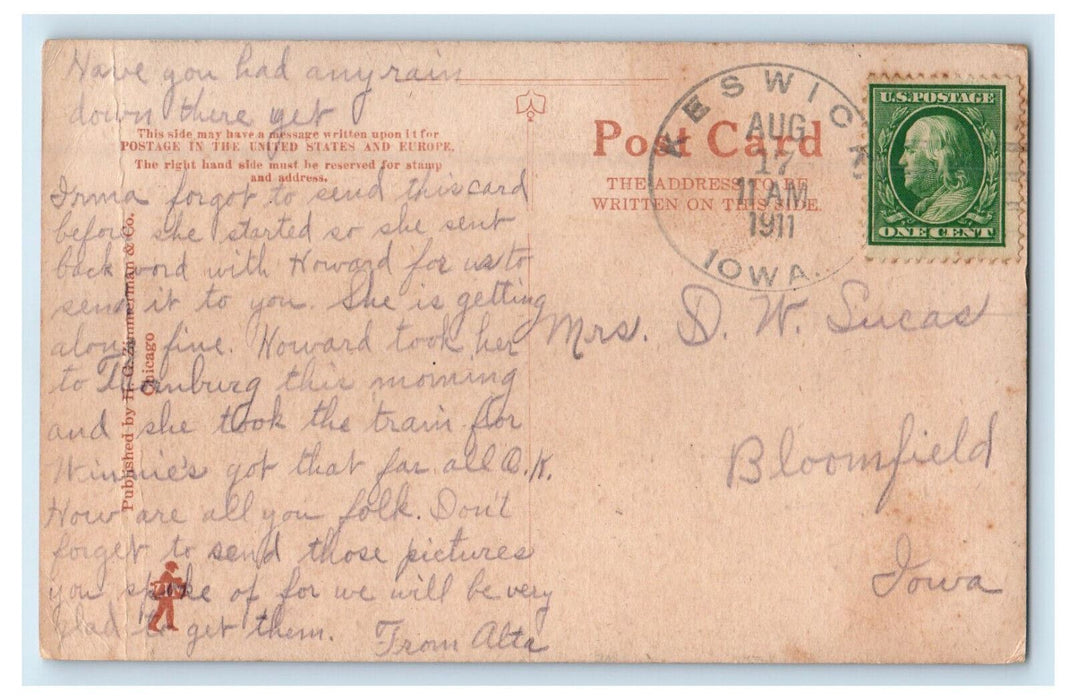 Have you had any rain
down there yet
This side may have a message written upon it for
POSTAGE IN THE UNITED STATES AND EUROPE.
The right hand side must be reserved for stamp
and address.
Irma forgot to send this card
before she started so she sent
back word with Howard for us to
send it to you. She is getting
along fine. Howard took her
to Thornburg this morning
and she took the train for
Winnie's got that far all O.K.
How are all you folk. Don't
forget to send those pictures
you spoke of for we will be very
glad to get them. From Alta
Published by H. G. Zimmerman & Co.
Chicago
Post Card
THE ADDRESS TO BE
WRITTEN ON THIS SIDE.
KESWICK
AUG
17
11 AM
1911
IOWA.
U.S. POSTAGE
ONE CENT
Mrs. D. W. Lucas
Bloomfield
Iowa